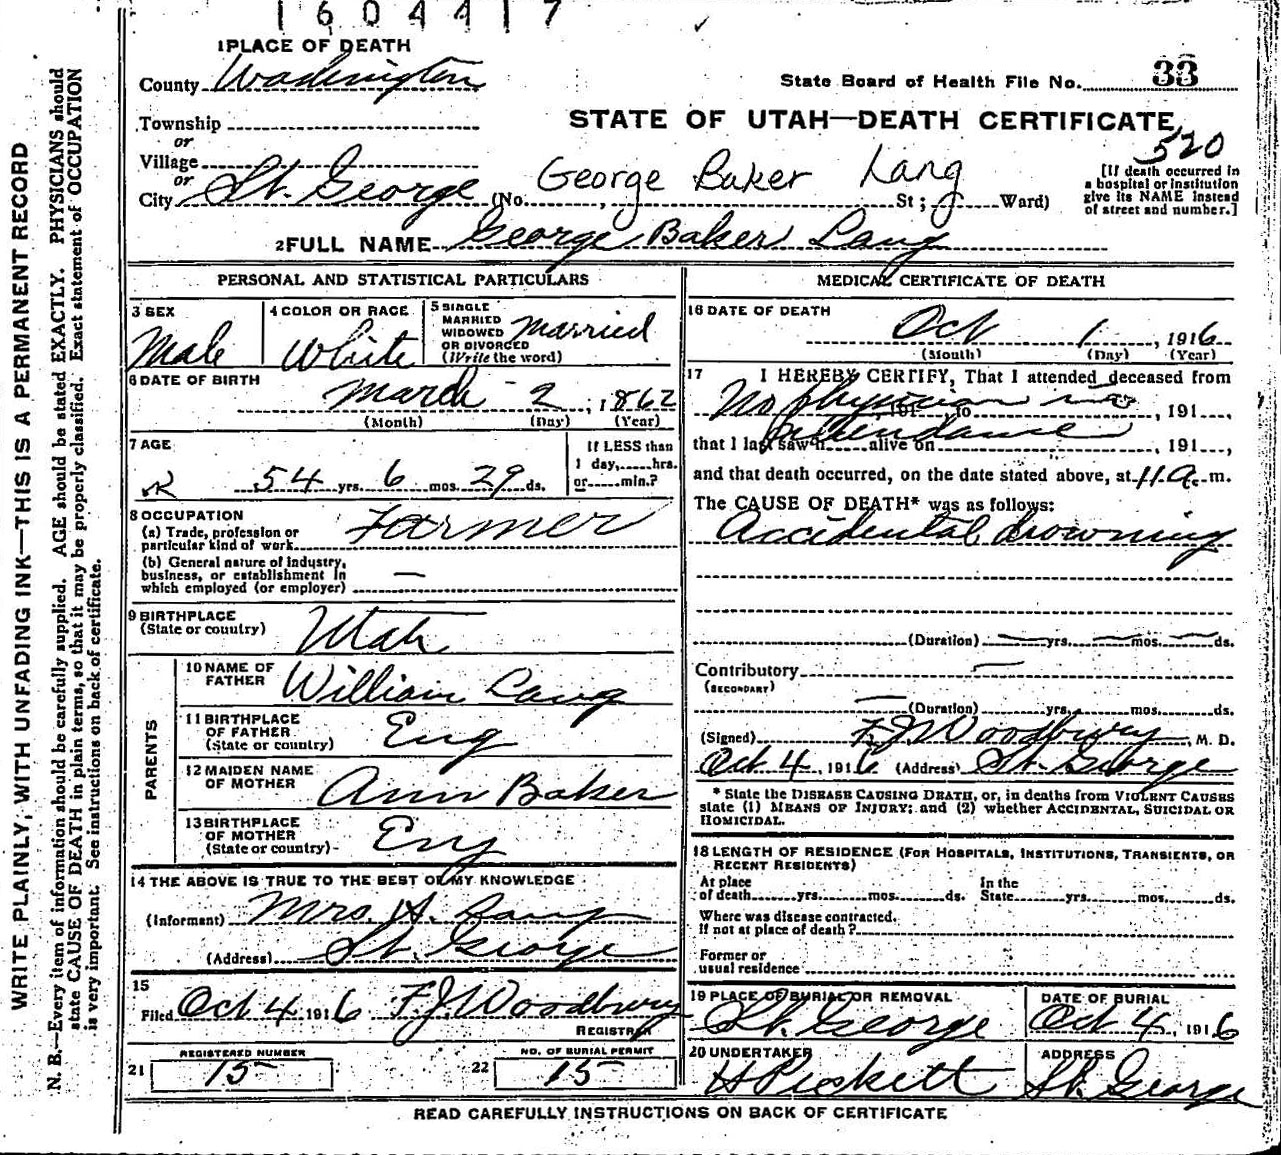 1604417
1 PLACE OF DEATH
County Washington
State Board of Health File No. 33
Township
or
STATE OF UTAH—DEATH CERTIFICATE
520
Village
or
City St. George (No. , St; Ward)
George Baker Lang
[If death occurred in
a hospital or institution
give its NAME instead
of street and number.]
2 FULL NAME George Baker Lang
PERSONAL AND STATISTICAL PARTICULARS
3 SEX
Male
4 COLOR OR RACE
White
5 SINGLE
MARRIED
WIDOWED
OR DIVORCED
(Write the word)
Married
6 DATE OF BIRTH
March 2, 1862
(Month) (Day) (Year)
7 AGE
54 yrs. 6 mos. 29 ds.
If LESS than
1 day, hrs.
or min.?
8 OCCUPATION
(a) Trade, profession or
particular kind of work Farmer
(b) General nature of industry,
business, or establishment in
which employed (or employer) —
9 BIRTHPLACE
(State or country) Utah
PARENTS
10 NAME OF
FATHER William Lang
11 BIRTHPLACE
OF FATHER
(State or country) Eng
12 MAIDEN NAME
OF MOTHER Ann Baker
13 BIRTHPLACE
OF MOTHER
(State or country) Eng
14 THE ABOVE IS TRUE TO THE BEST OF MY KNOWLEDGE
(Informant) Mrs. H. Lang
(Address) St. George
15
Filed Oct 4 1916 F. J. Woodbury
REGISTRAR
21 REGISTERED NUMBER
15
22 NO. OF BURIAL PERMIT
15
MEDICAL CERTIFICATE OF DEATH
16 DATE OF DEATH
Oct 1, 1916
(Month) (Day) (Year)
17 I HEREBY CERTIFY, That I attended deceased from
No physician in , 191 , to , 191 ,
attendance
that I last saw h alive on , 191 ,
and that death occurred, on the date stated above, at 11 a. m.
The CAUSE OF DEATH* was as follows:
Accidental drowning
(Duration) — yrs. — mos. — ds.
Contributory —
(SECONDARY)
— (Duration) yrs. mos. ds.
(Signed) F. J. Woodbury, M. D.
Oct 4, 1916 (Address) St. George
* State the DISEASE CAUSING DEATH, or, in deaths from VIOLENT CAUSES
state (1) MEANS OF INJURY; and (2) whether ACCIDENTAL, SUICIDAL OR
HOMICIDAL.
18 LENGTH OF RESIDENCE (FOR HOSPITALS, INSTITUTIONS, TRANSIENTS, OR
RECENT RESIDENTS)
At place
of death yrs. mos. ds.
In the
State yrs. mos. ds.
Where was disease contracted.
If not at place of death?
Former or
usual residence
19 PLACE OF BURIAL OR REMOVAL
St. George
DATE OF BURIAL
Oct 4, 1916
20 UNDERTAKER
H Pickett
ADDRESS
St. George
READ CAREFULLY INSTRUCTIONS ON BACK OF CERTIFICATE
WRITE PLAINLY, WITH UNFADING INK—THIS IS A PERMANENT RECORD
N. B.—Every item of information should be carefully supplied. AGE should be stated EXACTLY. PHYSICIANS should
state CAUSE OF DEATH in plain terms, so that it may be properly classified. Exact statement of OCCUPATION
is very important. See instructions on back of certificate.